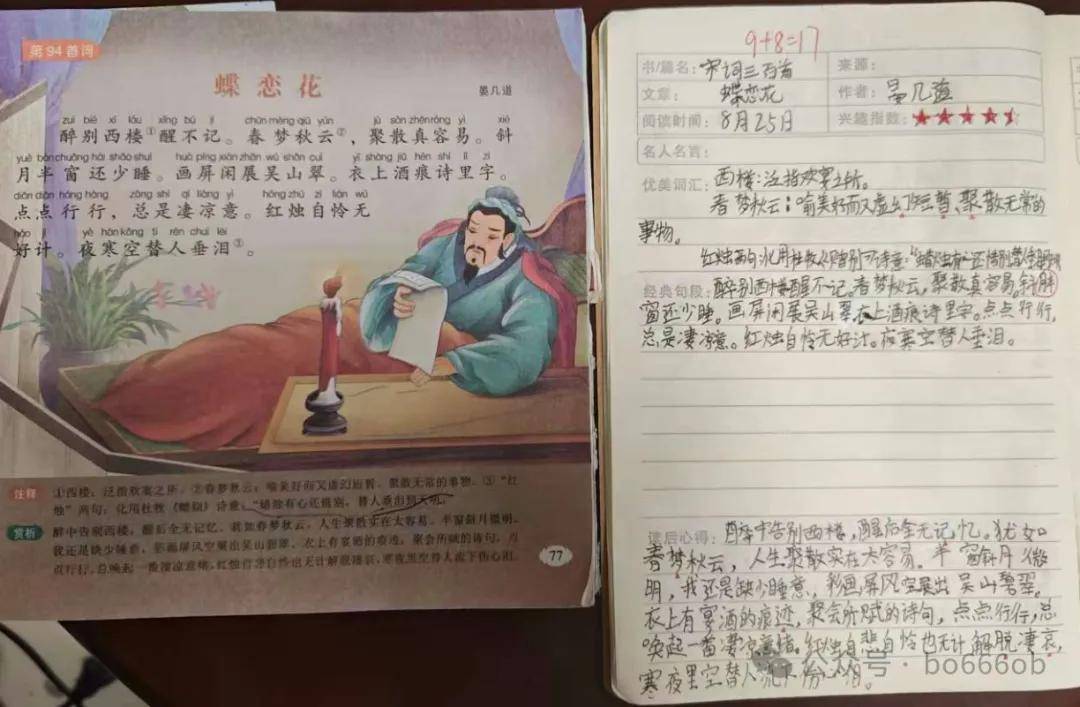 第94首词
蝶恋花
晏几道
zuì bié xī lóu xǐng bú jì chūn mèng qiū yún jù sàn zhēn róng yì xié
醉别西楼①醒不记。春梦秋云②，聚散真容易。斜
yuè bàn chuāng hái shǎo shuì huà píng xián zhǎn wú shān cuì yī shàng jiǔ hén shī lǐ zì
月半窗还少睡。画屏闲展吴山翠。衣上酒痕诗里字。
diǎn diǎn háng háng zǒng shì qī liáng yì hóng zhú zì lián wú
点点行行，总是凄凉意。红烛自怜无
hǎo jì yè hán kōng tì rén chuí lèi
好计。夜寒空替人垂泪③。
注释
①西楼：泛指欢宴之所。②春梦秋云：喻美好而又虚幻短暂、聚散无常的事物。③“红
烛”两句：化用杜牧《赠别》诗意：“蜡烛有心还惜别，替人垂泪到天明。”
赏析
醉中告别西楼，醒后全无记忆。犹如春梦秋云，人生聚散实在太容易。半窗斜月微明，
我还是缺少睡意，彩画屏风空展出吴山碧翠。衣上有宴酒的痕迹，聚会所赋的诗句，点
点行行，总唤起一番凄凉意绪。红烛自悲自怜也无计解脱凄哀，寒夜里空替人流下伤心泪。
77
9+8=17
书/篇名：宋词三百首 来源：
文章：蝶恋花 作者：晏几道
阅读时间：8月25日 兴趣指数：★★★★
名人名言：
优美词汇：西楼：泛指欢宴之所。
春梦秋云：喻美好而又虚幻短暂、聚散无常的
事物。
红烛两句：化用杜牧《赠别》诗意：“蜡烛有心还惜别，替人垂
经典句段：醉别西楼醒不记。春梦秋云，聚散真容易。斜月半
窗还少睡。画屏闲展吴山翠。衣上酒痕诗里字。点点行行，
总是凄凉意。红烛自怜无好计。夜寒空替人垂泪。
读后心得：醉中告别西楼，醒后全无记忆。犹如
春梦秋云，人生聚散实在太容易。半窗斜月微
明，我还是缺少睡意，彩画屏风空展出吴山碧翠。
衣上有宴酒的痕迹，聚会所赋的诗句，点点行行，总
唤起一番凄凉意绪。红烛自悲自怜也无计解脱凄哀，
寒夜里空替人流下伤心泪。
公众号 · bo666ob